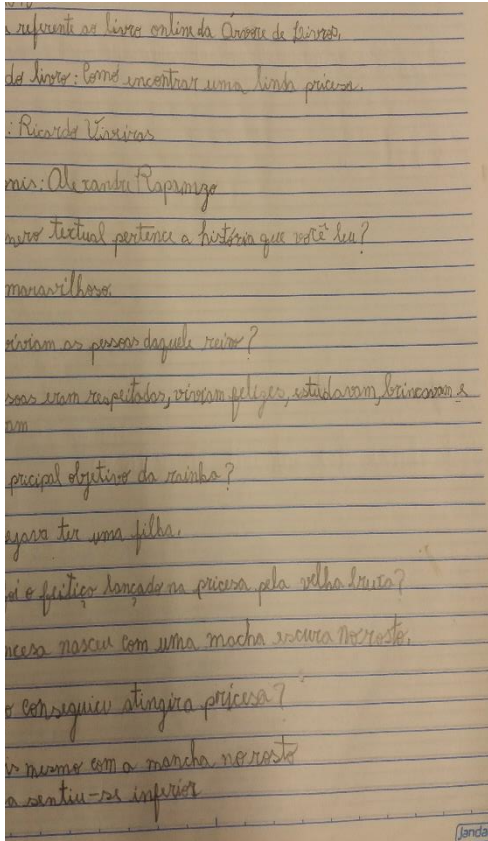 referente ao livro online da Árvore de Livros.
do livro: Como encontrar uma linda pricesa.
: Ricardo Viveiros
Alexandre Rampazo
nero textual pertence a história que você leu?
maravilhoso.
viviam as pessoas daquele reino?
soas eram respeitadas, viviam felizes, estudavam, brincavam e
am
pricipal objetivo da rainha?
ejava ter uma filha.
oi o feitiço lançado na pricesa pela velha bruxa?
ncesa nasceu com uma macha escura no rosto.
o conseguiu atingir a pricesa?
is mesmo com a mancha no rosto
a sentiu-se inferior
Janda